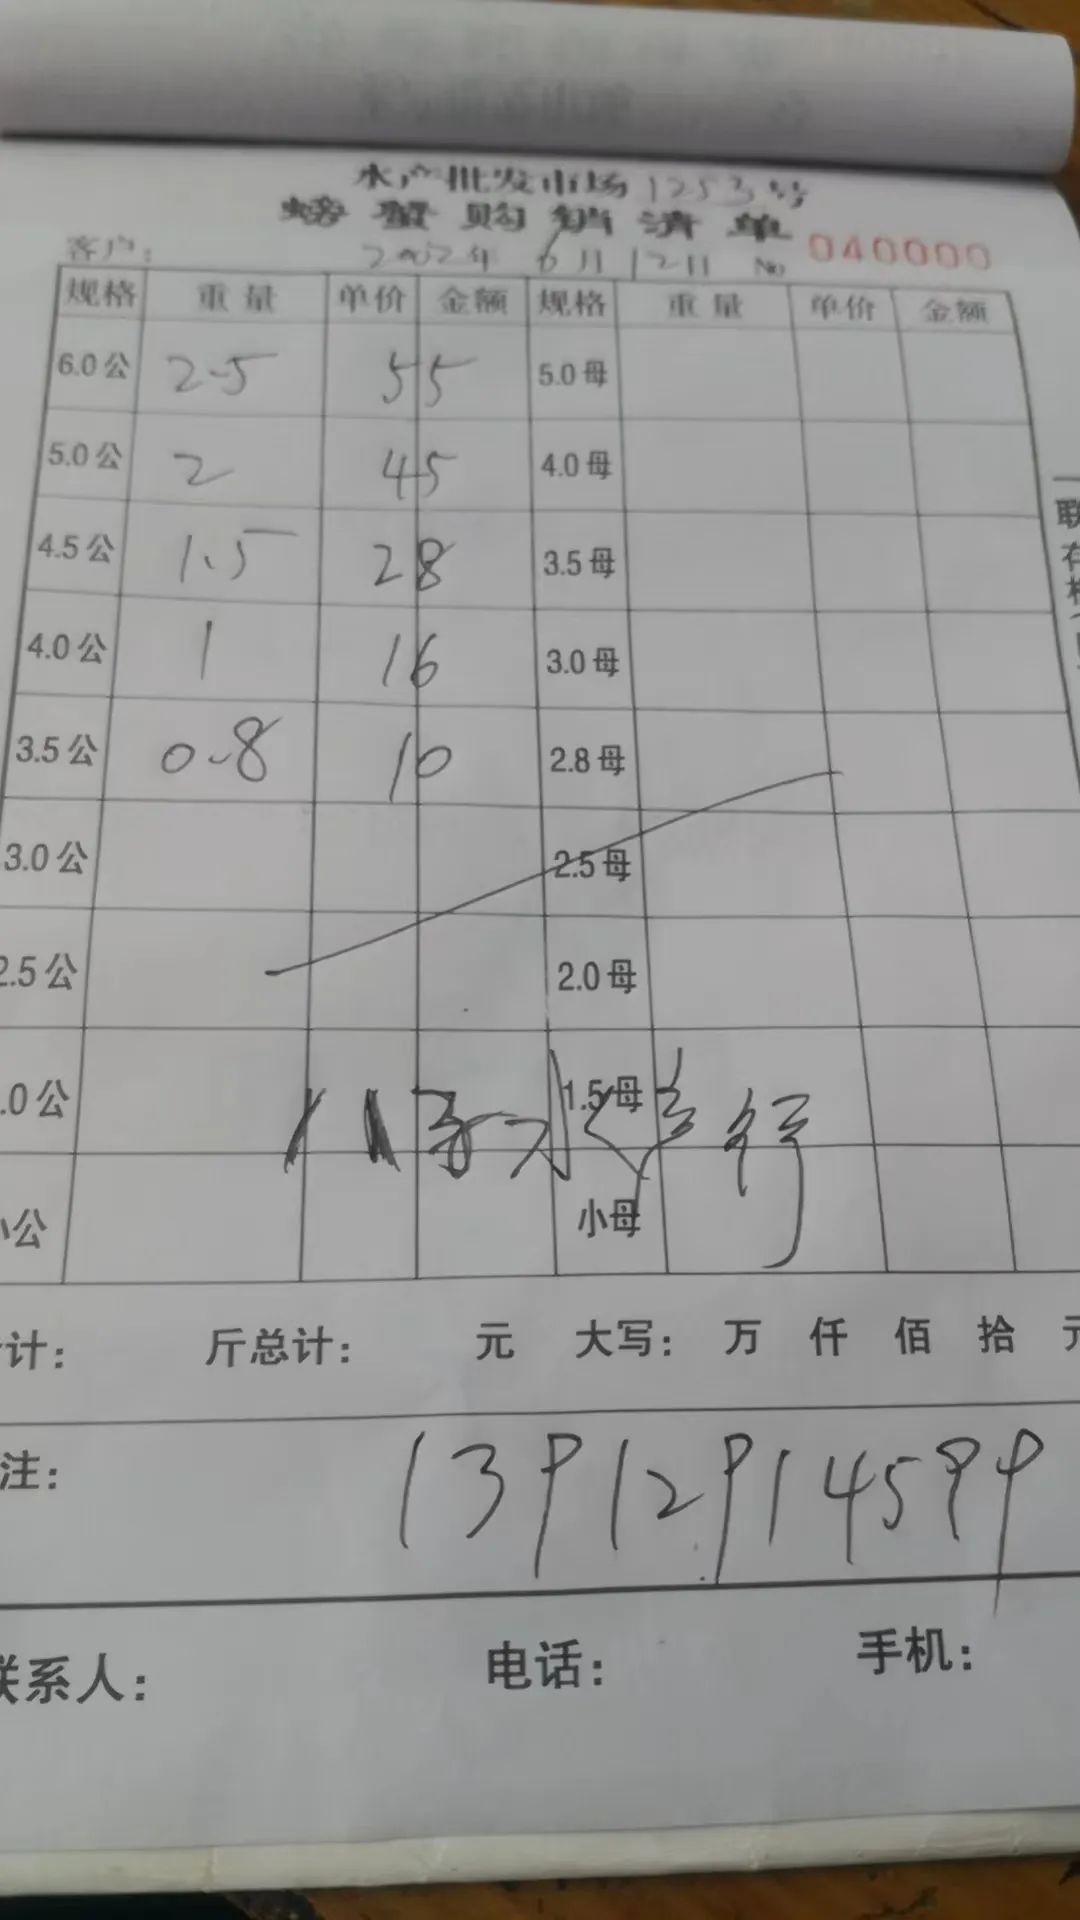 水产批发市场1253号
螃蟹购销清单
客户： 2002年 6月12日 No 040000
规格 重量 单价 金额 规格 重量 单价 金额
6.0公 2.5 55 5.0母
5.0公 2 45 4.0母
4.5公 1.5 28 3.5母
4.0公 1 16 3.0母
3.5公 0.8 10 2.8母
3.0公 2.5母
2.5公 2.0母
.0公 1.5母
小公 小母
计： 斤总计： 元 大写： 万 仟 佰 拾 元
注： 13912914599
联系人： 电话： 手机：
一联存根